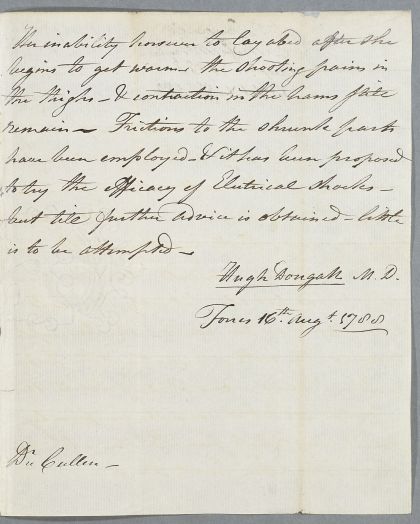 The inability however to lay abed after she
begins to get warm - the shooting pains in
the thighs - & contraction in the hams still
remain - Frictions to the shrunk parts
have been employed - & it has been proposed
to try the efficacy of Electrical shocks -
but till further advice is obtained - little
is to be attempted -
Hugh Dougall M. D.
Forres 16th. Augt. 1788
Dr Cullen -